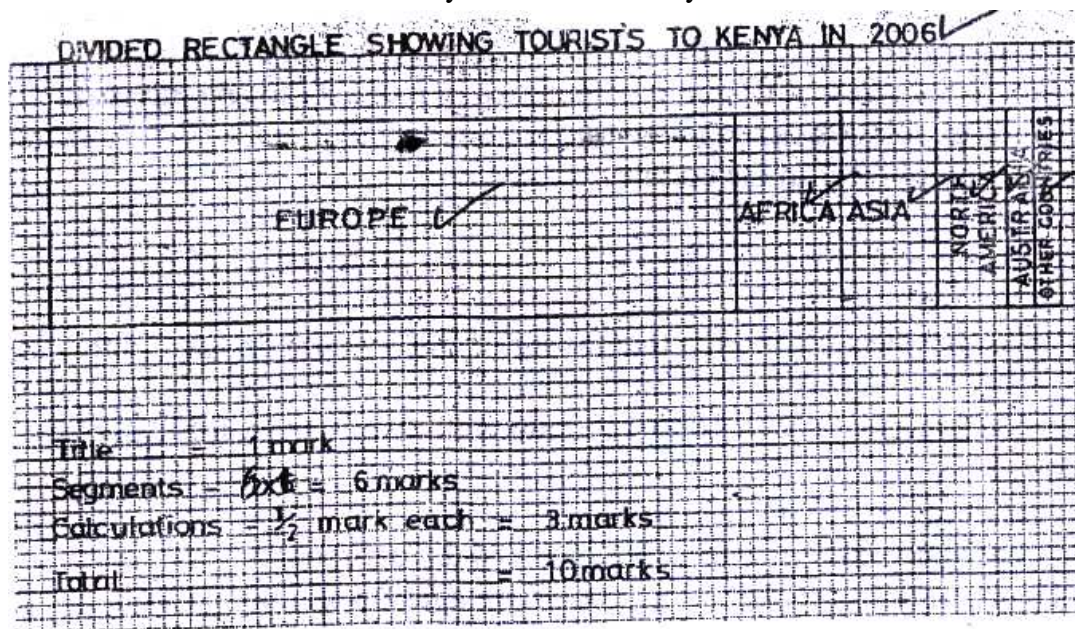 DIVIDED RECTANGLE SHOWING TOURISTS TO KENYA IN 2006
EUROPE
AFRICA
ASIA
NORTH
AMERICA
AUSTRALIA
OTHER COUNTRIES
Title = 1 mark
Segments - 6x1 = 6 marks
Calculations - ½ mark each = 3 marks
Total = 10 marks